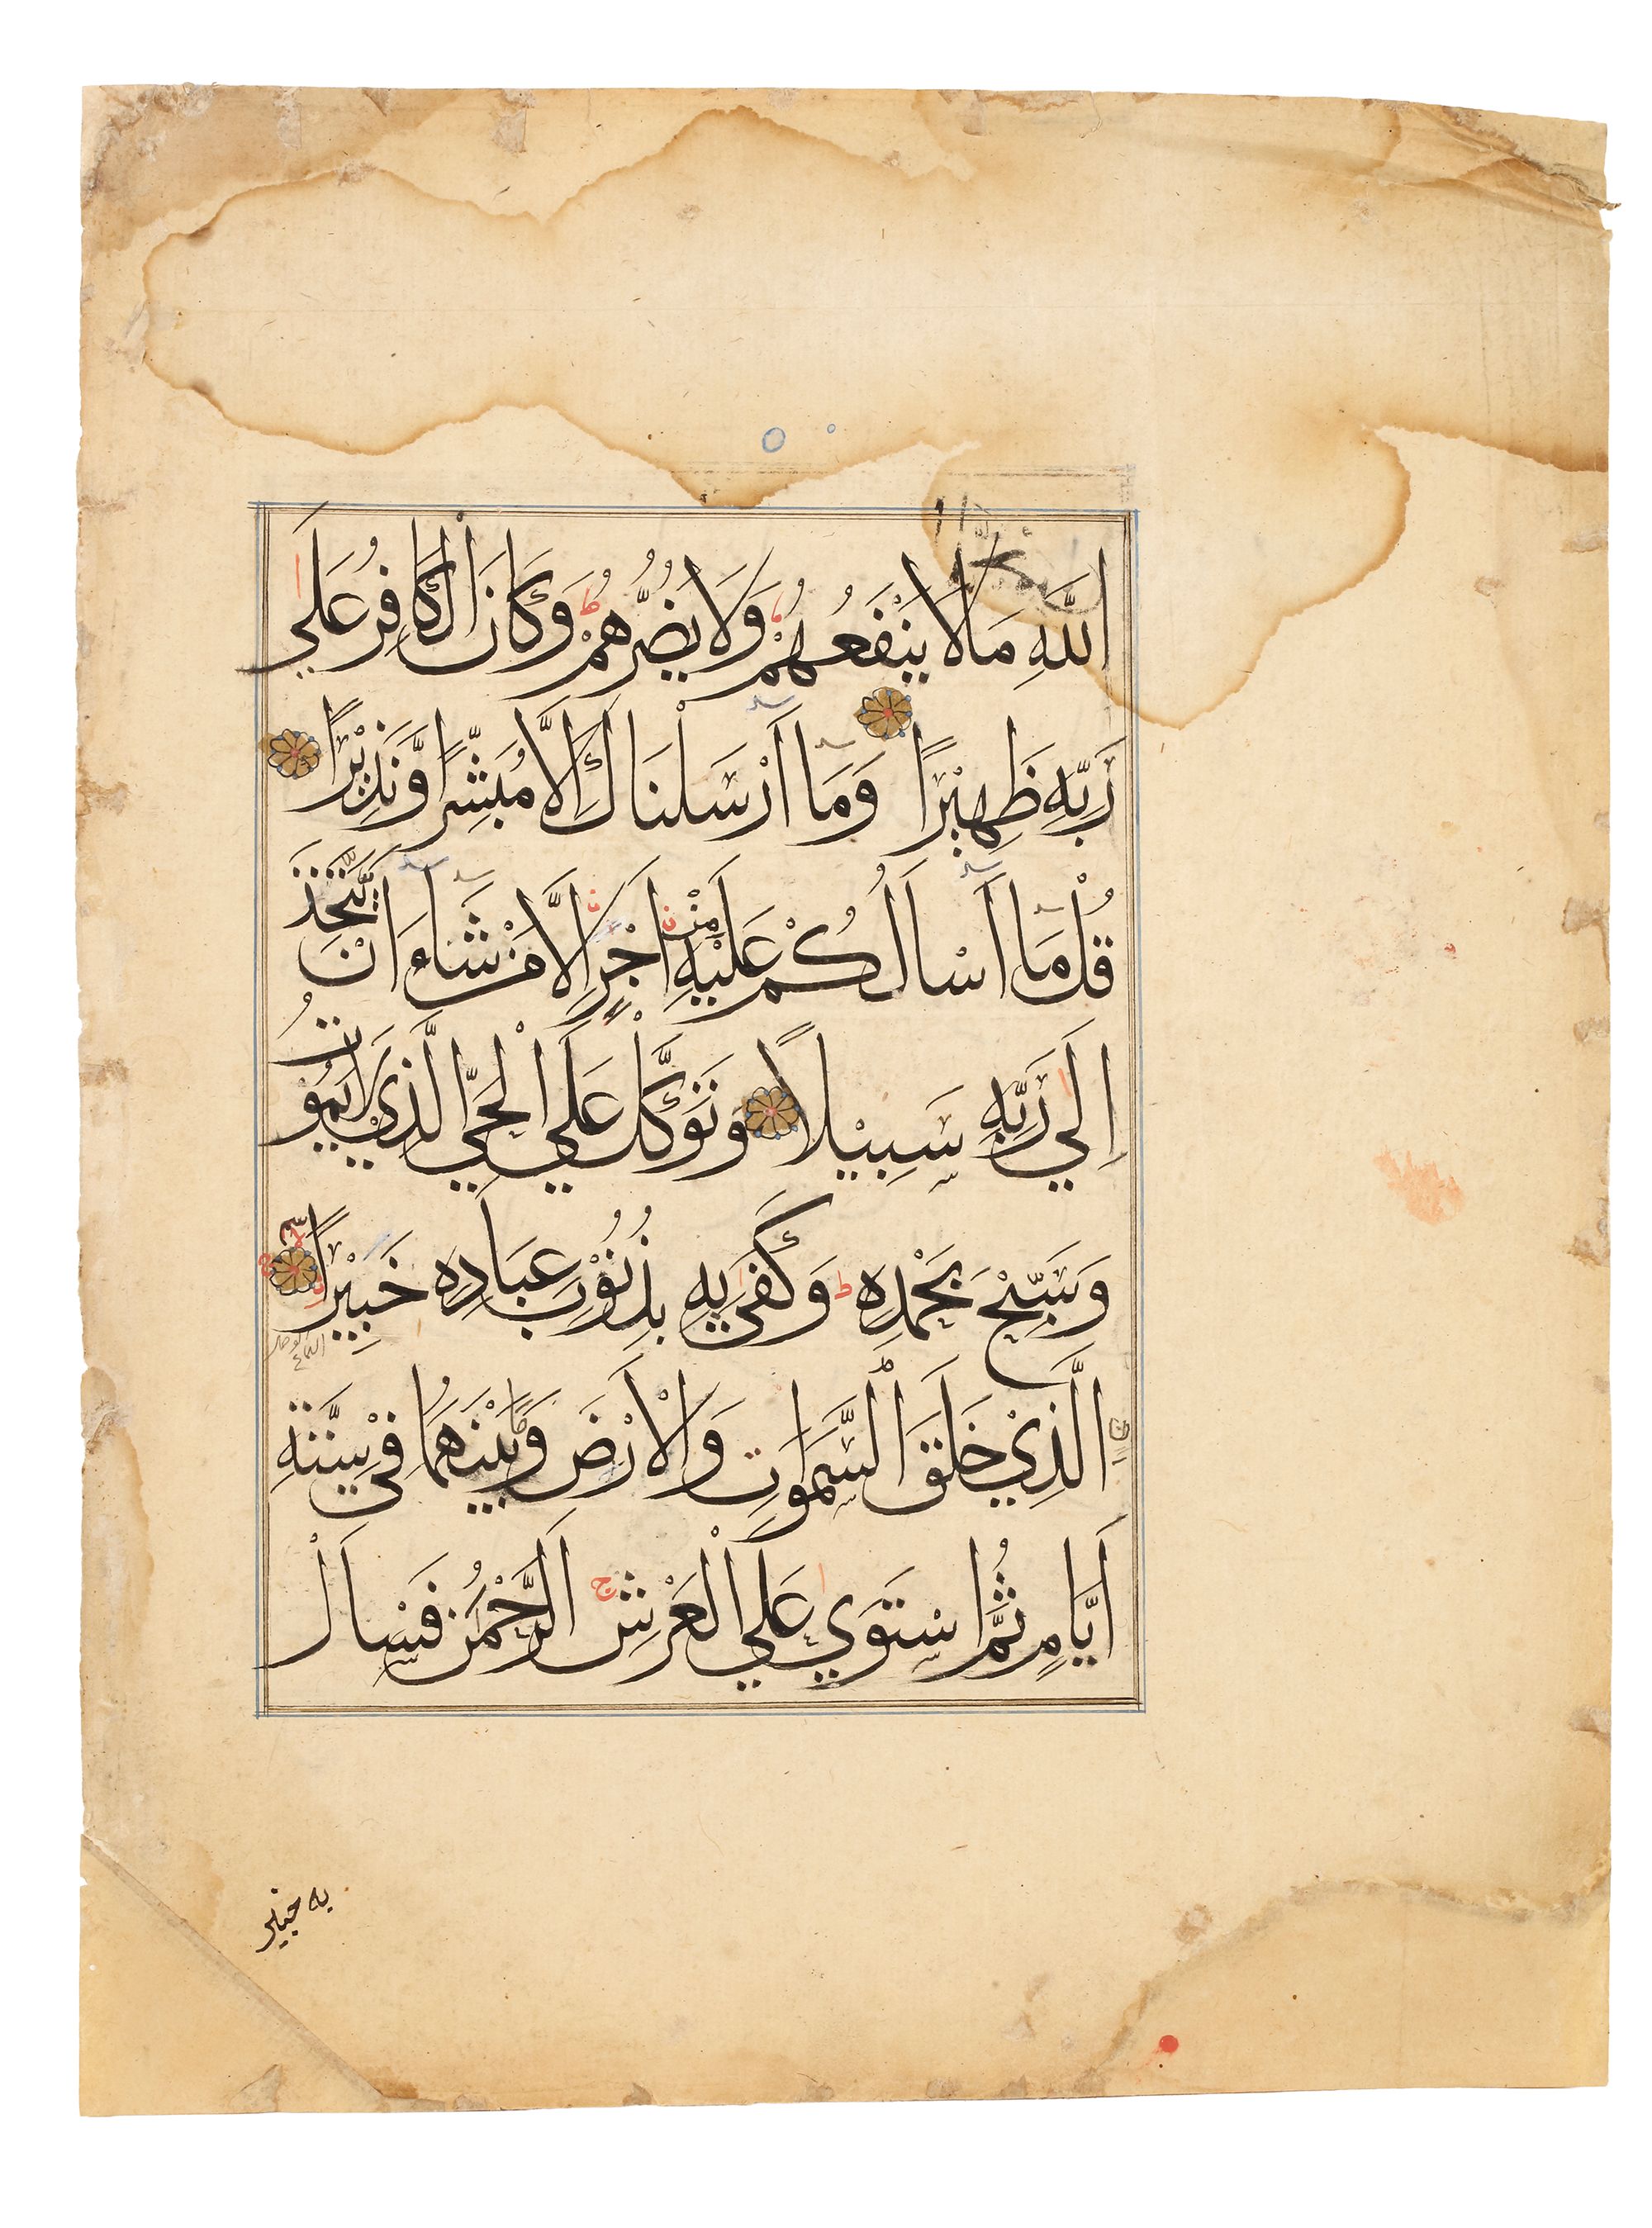 اللَّهِ مَا لَا يَنْفَعُهُمْ وَلَا يَضُرُّهُمْ وَكَانَ الْكَافِرُ عَلَي
رَبِّهِ ظَهِيْرًا وَمَا أَرْسَلْنَاكَ إِلَّا مُبَشِّرًا وَّنَذِيْرًا
قُلْ مَا أَسْأَلُكُمْ عَلَيْهِ مِنْ اَجْرٍ اِلَّا مَنْ شَاءَ اَنْ يَّتَّخِذَ
اِلَي رَبِّهِ سَبِيْلًا وَتَوَكَّلْ عَلَي الْحَيِّ الَّذِيْ لَا يَمُوتُ
وَسَبِّحْ بِحَمْدِهِ وَكَفَي بِهِ بِذُنُوْبِ عِبَادِهِ خَبِيْرًا
الَّذِيْ خَلَقَ السَّمَوَاتِ وَالْأَرْضَ وَمَا بَيْنَهُمَا فِيْ سِتَّةِ
اَيَّامٍ ثُمَّ اسْتَوَي عَلَي الْعَرْشِ اَلرَّحْمٰنُ فَسْاَلْ
به خبير